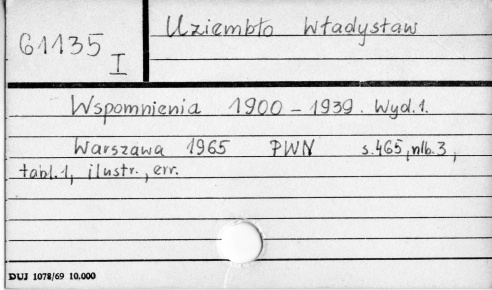 Uziembło Władysław
61135
I
Wspomnienia 1900-1939. Wyd.1.
Warszawa 1965 PWN s.465, nlb.3,
tabl.1, ilustr., err.
DUJ 1078/69 10,000